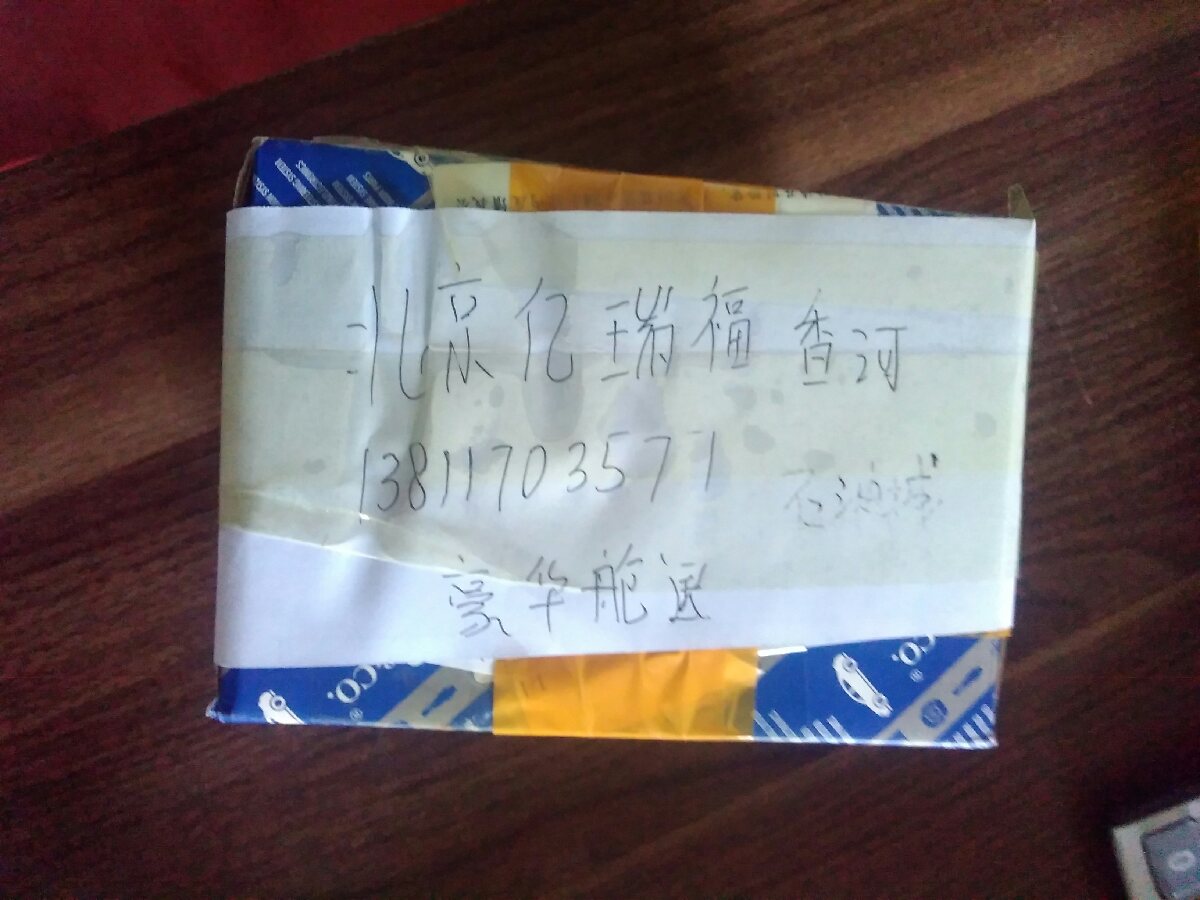 北京亿瑞福 香河
13811703571
石油城
豪华舱送
&CO.®